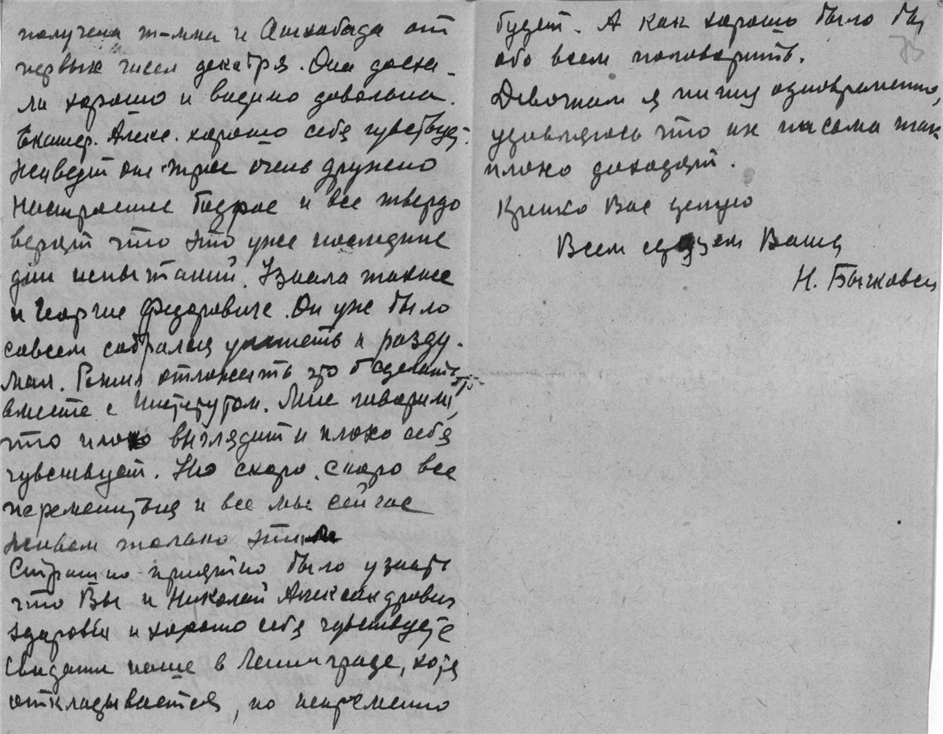 получена т-мма из Ашхабада от
первых чисел декабря. Она доеха-
ли хорошо и видимо довольна.
Екатер. Алекс. хорошо себя чувствует.
Живет они трое очень дружно
Настроение бодрое и все твердо
верят что это уже последние
дни испытаний. Узнала также
и Георгие Федоровиче. Он уже было
совсем собрался улететь и разду-
мал. Решил отложить это и сделать
вместе с Институтом. Мне говорили,
что плохо выглядит и плохо себя
чувствует. Но скоро, скоро все
переменится и все мы сейчас
живем только этим
Страшно приятно было узнать
что Вы и Николай Александрович
здоровы и хорошо себя чувствуете
Свидание наше в Ленинграде, хотя
откладывается, но непременно
будет. А как хорошо было бы
обо всем поговорить.
Девочкам я пишу одновременно,
удивляюсь что их письма так
плохо доходят.
Крепко Вас целую
Всем сердцем Ваша
Н. Бычковск